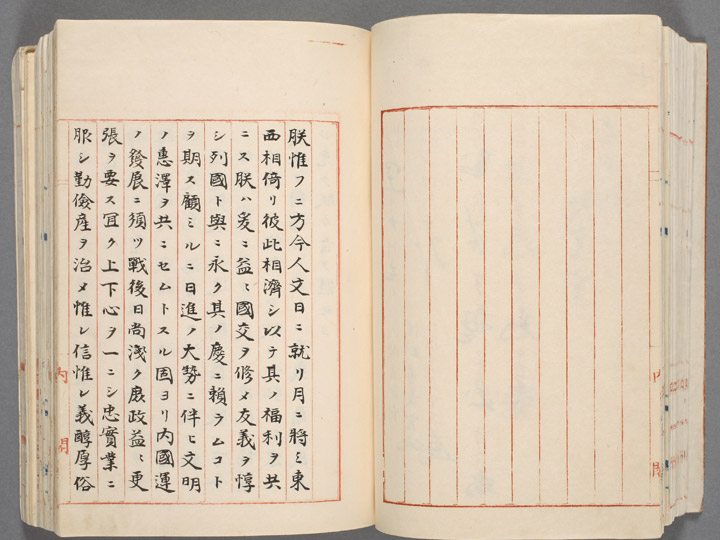 朕惟フニ方今人文日ニ就リ月ニ將ミ東
西相倚リ彼此相濟シ以テ其ノ福利ヲ共
ニス朕ハ爰ニ益〻國交ヲ修メ友義ヲ惇
シ列國ト與ニ永ク其ノ慶ニ賴ラムコト
ヲ期ス顧ミルニ日進ノ大勢ニ伴ヒ文明
ノ惠澤ヲ共ニセムトスル固ヨリ內國運
ノ發展ニ須ツ戰後日尙淺ク庶政益〻更
張ヲ要ス宜ク上下心ヲ一ニシ忠實業ニ
服シ勤儉產ヲ治メ惟レ信惟レ義醇厚俗
內閣